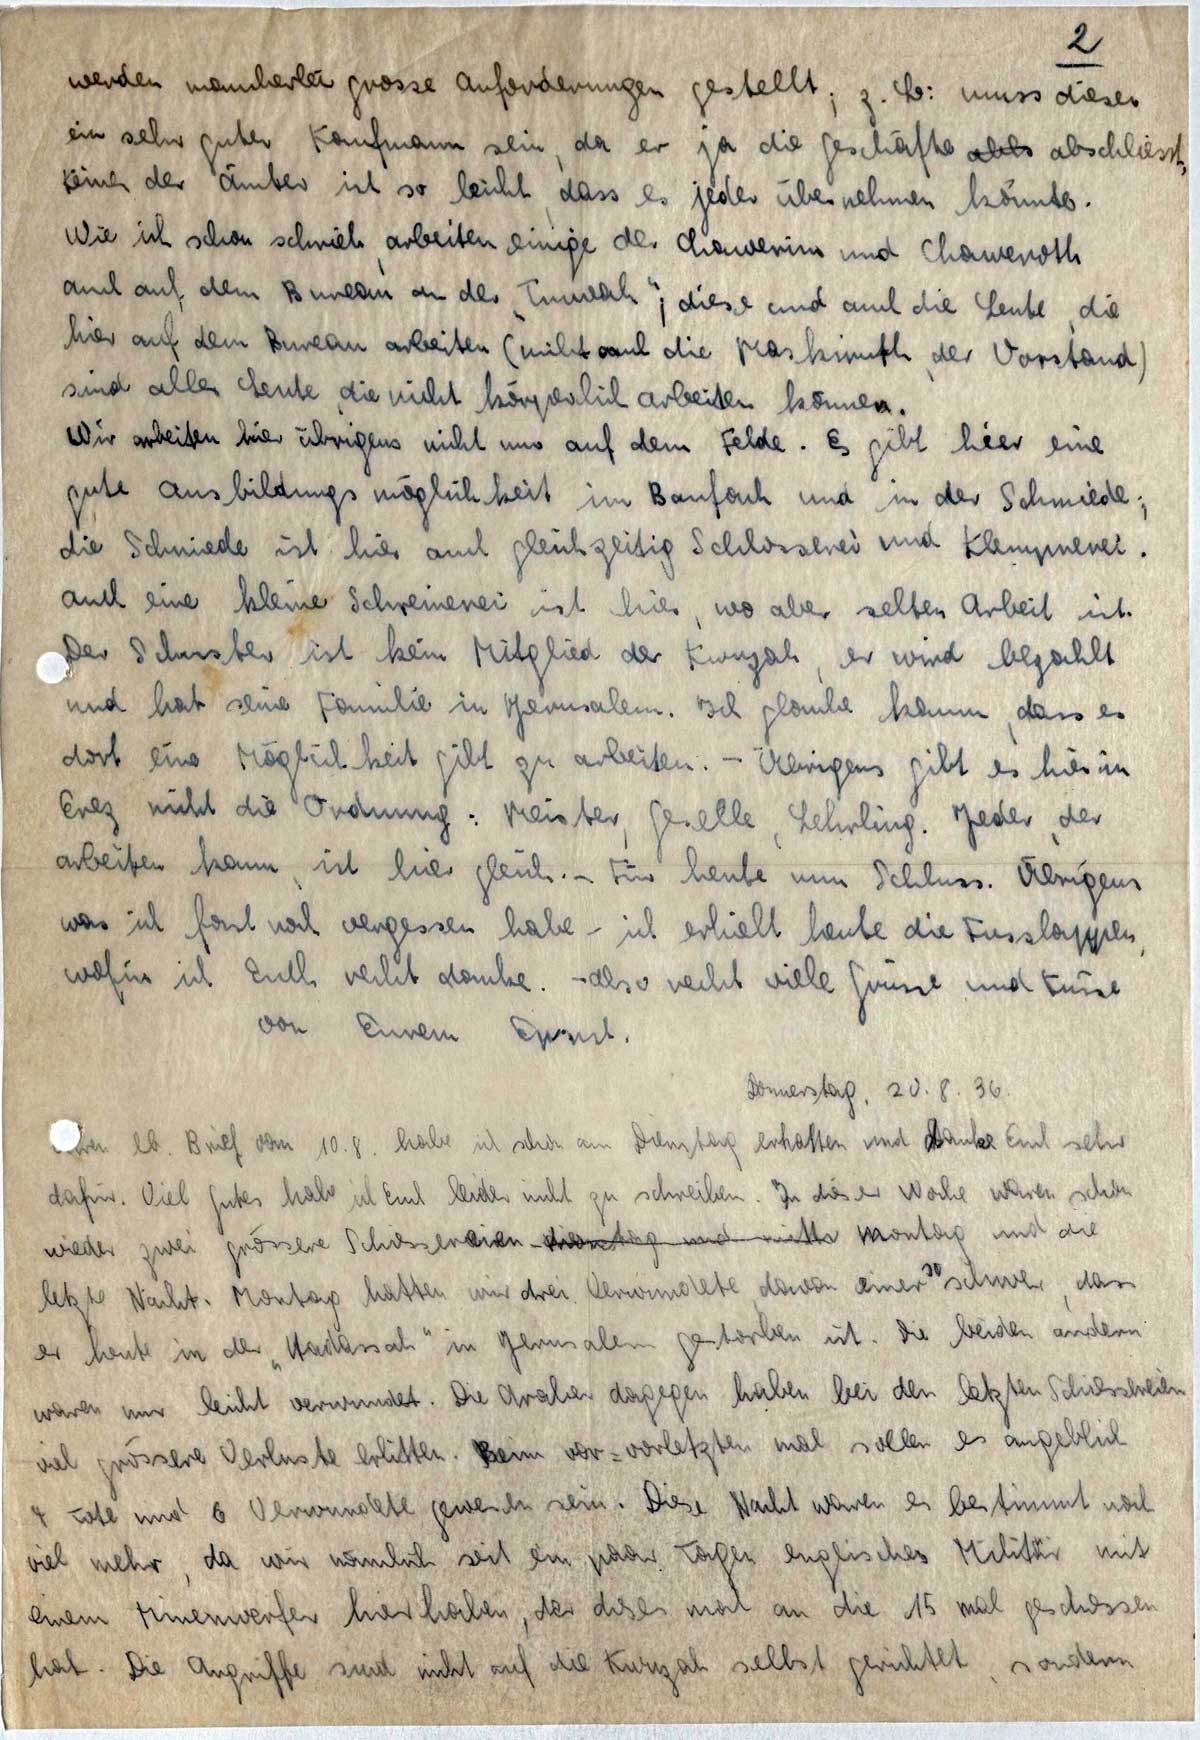 2
werden mancherlei grosse Anforderungen gestellt; z. B: muss dieser
ein sehr guter Kaufmann sein, da er ja die Geschäfte abschliesst,
keines der Ämter ist so leicht, dass es jeder übernehmen könnte.
Wie ich schon schrieb, arbeiten einige der Chawerim und Chaweroth
auch auf dem Bureau an der „Tnuvah“; diese und auch die Leute, die
hier auf dem Bureau arbeiten (nicht auch die Maskiruth, der Vorstand)
sind alles Leute, die nicht körperlich arbeiten können.
Wir arbeiten hier übrigens nicht nur auf dem Felde. Es gibt hier eine
gute Ausbildungsmöglichkeit im Baufach und in der Schmiede;
die Schmiede ist hier auch gleichzeitig Schlosserei und Klempnerei.
Auch eine kleine Schreinerei ist hier, wo aber selten Arbeit ist.
Der Schuster ist kein Mitglied der Kwuzah, er wird bezahlt
und hat seine Familie in Jerusalem. Ich glaube kaum, dass es
dort eine Möglichkeit gibt zu arbeiten. – Übrigens gibt es hier in
Erez nicht die Ordnung: Meister, Geselle, Lehrling. Jeder, der
arbeiten kann, ist hier gleich. – Für heute nun Schluss. Übrigens
was ich fast noch vergessen habe – ich erhielt heute die Fusslappen,
wofür ich Euch recht danke. – also recht viele Grüsse und Küsse
von Eurem Ernst.
Donnerstag, 20.8.36.
lb. Brief vom 10.8. habe ich schon am Dienstag erhalten und danke Euch sehr
dafür. Viel Gutes habe ich Euch leider nicht zu schreiben. In dieser Woche waren schon
wieder zwei grössere Schiessereien dienstag und mittw Montag und die
letzte Nacht. Montag hatten wir drei Verwundete, davon einer so schwer, dass
er heute in der „Hadassah“ in Jerusalem gestorben ist. Die beiden andern
waren nur leicht verwundet. Die Araber dagegen haben bei den letzten Schiessereien
viel grössere Verluste erlitten. Beim vor-vorletzten mal sollen es angeblich
4 Tote und 6 Verwundete gewesen sein. Diese Nacht waren es bestimmt noch
viel mehr, da wir nämlich seit ein paar Tagen englisches Militär mit
einem Minenwerfer hier haben, der dieses mal an die 15 mal geschossen
hat. Die Angriffe sind nicht auf die Kwuzah selbst gerichtet, sondern